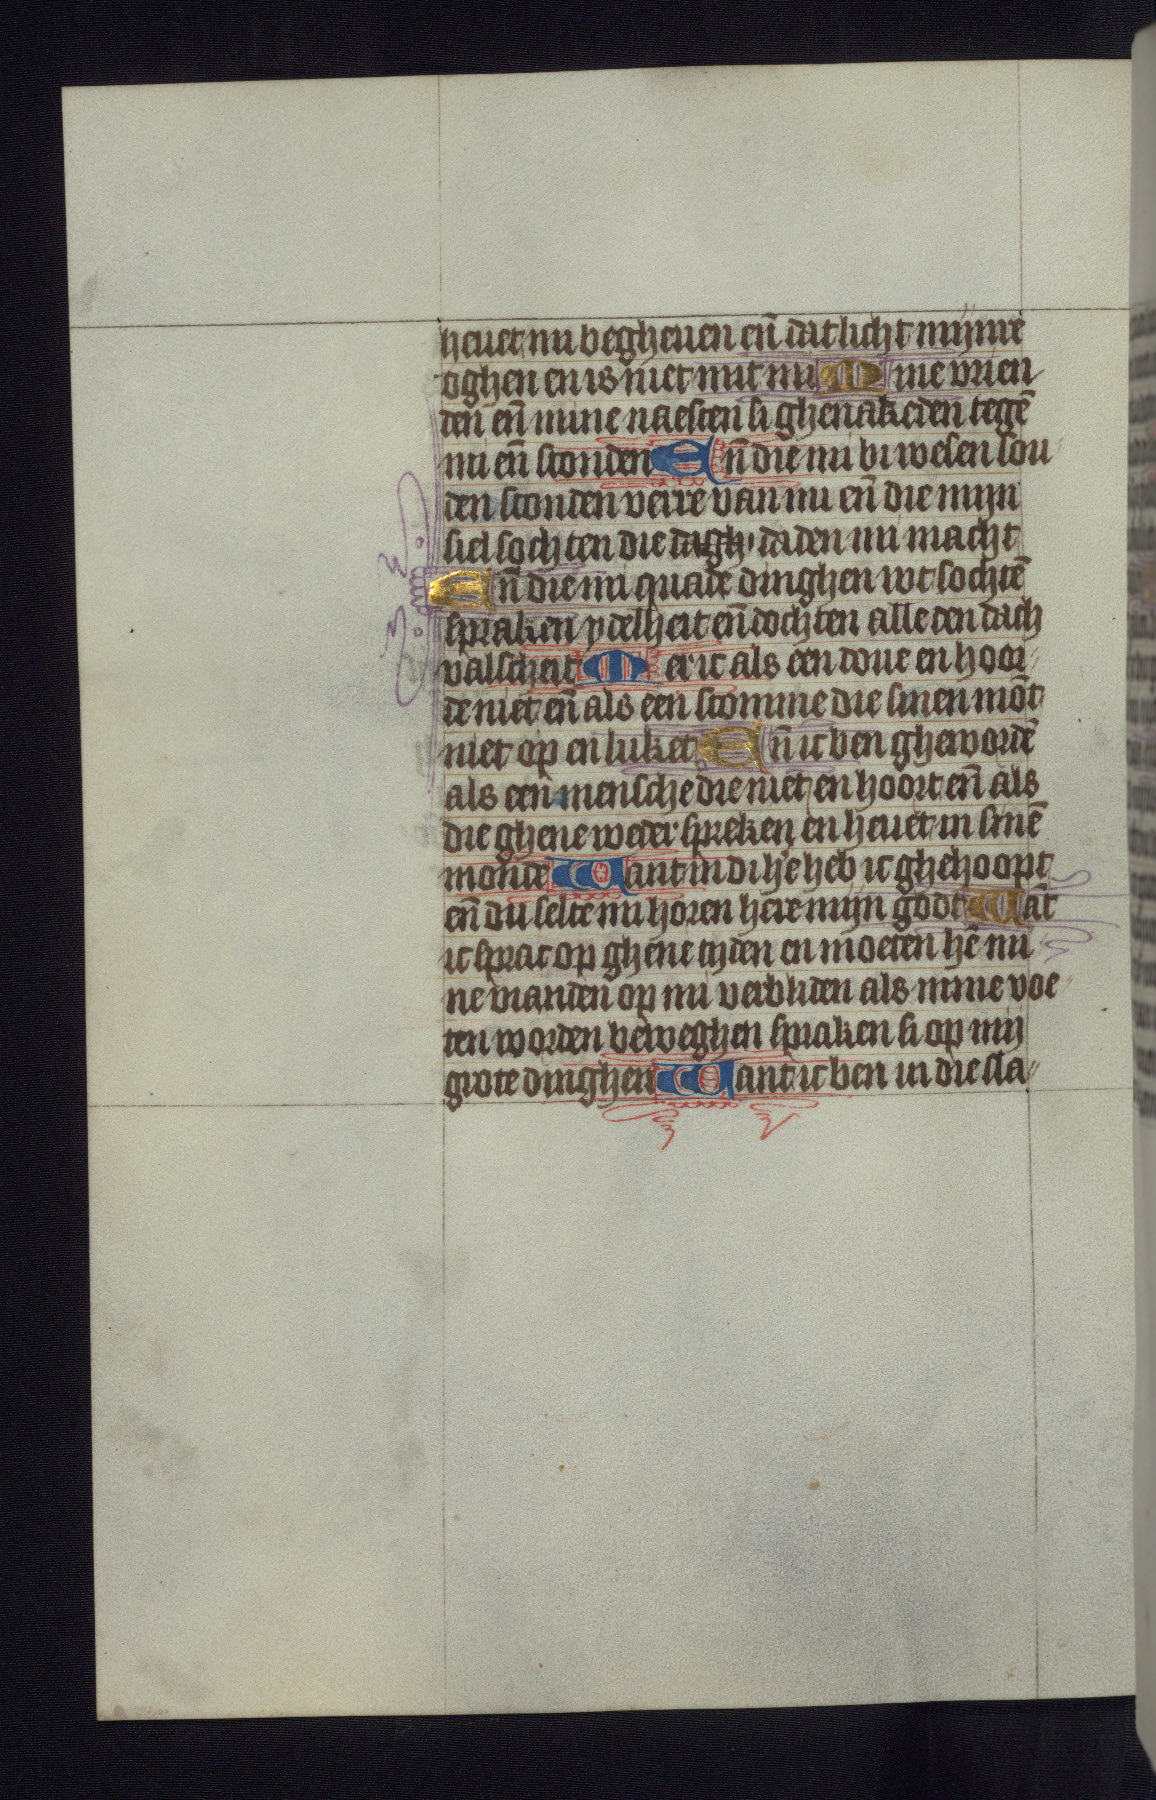 heuet mi begheuen en̄ dat licht mijnre
oghen en is niet mit mi Mine vrien
den en̄ mine naesten si ghenakeden tegē
mi en̄ stonden En̄ die mi bi wesen sou
den stonden verre van mi en̄ die mijn
siel sochten die daden mi macht
En̄ die mi quade dinghen wt sochtē
spraken ydelheit en̄ dochten alle den dach
valscheit Mer ic als een doue en hoor
de niet en̄ als een stomme die sinen mōt
niet op en luket En̄ ic ben ghewordē
als een mensche die niet en hoort en̄ als
die ghene weder spreken en heuet in sinē
monde Want in di hēe heb ic ghehoopt
en̄ du selte mi horen here mijn godt Wāt
ic sprac op ghene tyden en moeten hē mi
ne vianden op mi verbliden als mine voe
ten worden beweghen spraken si op mij
grote dinghen Want ic ben in die sla